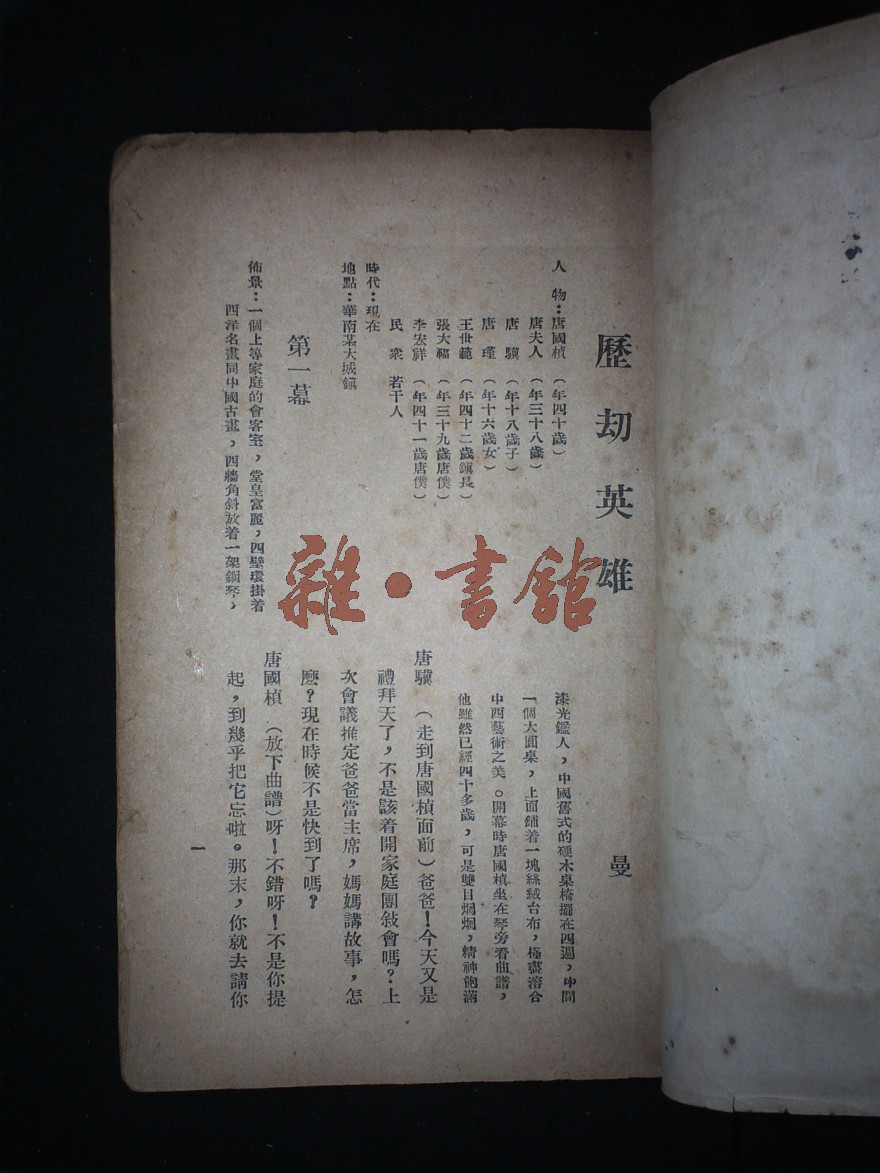 歷劫英雄
曼
人　物：唐國楨　（年四十歲）
唐夫人　（年三十八歲）
唐　驥　（年十八歲子）
唐　瑾　（年十六歲女）
王世範　（年四十二歲鎮長）
張大福　（年三十九歲唐僕）
李宏祥　（年四十一歲唐僕）
民　衆　若干人
時代：現在
地點：華南某大城鎮
第一幕
佈景：一個上等家庭的會客室，堂皇富麗，四壁環掛着
西洋名畫同中國古畫，西牆角斜放着一架鋼琴，
漆光鑑人，中國舊式的硬木桌椅擺在四週，中間
一個大圓桌，上面鋪着一塊絲絨台布，極盡溶合
中西藝術之美。開幕時唐國楨坐在琴旁看曲譜，
他雖然已經四十多歲，可是雙目炯炯，精神飽滿
唐驥　（走到唐國楨面前）爸爸！今天又是
禮拜天了，不是該着開家庭團敍會嗎？上
次會議推定爸爸當主席，媽媽講故事，怎
麽？現在時候不是快到了嗎？
唐國楨　（放下曲譜）呀！不錯呀！不是你提
起，到幾乎把它忘啦。那末，你就去請你
一
雜·書館